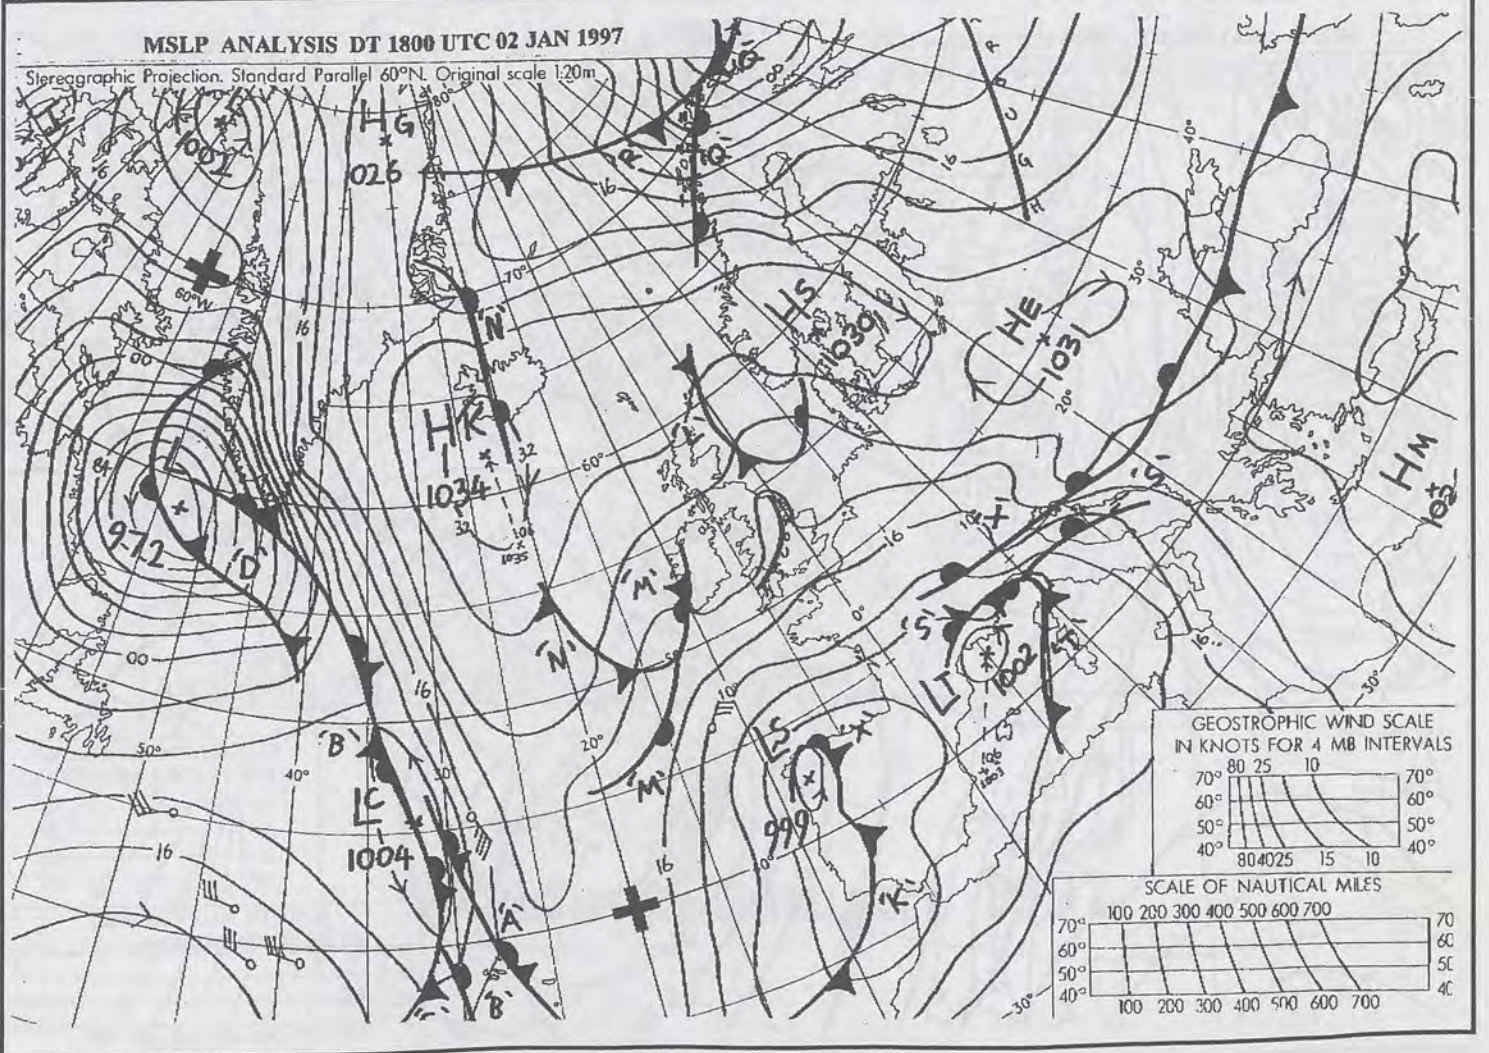 MSLP ANALYSIS DT 1800 UTC 02 JAN 1997
Stereographic Projection. Standard Parallel 60°N. Original scale 1:20m
L
1002
H G
026
80°
'Q'
08
'R'
'Q'
16
16
TROUGH
16
40°
60°W
70°
'N'
HS
1030
HE
1031
30°
20°
00
16
HK
1034
32
32
1035
60°
L
84
972
'D'
HM
103
'S'
'X'
16
'M'
'S'
'T'
LT
1002
0°
16
30°
'N'
00
16
10°
50°
40°
20°
'B'
'M'
LS
999
'X'
1003
LC
1004
16
16
40°
'K'
'A'
'B'
30°
GEOSTROPHIC WIND SCALE
IN KNOTS FOR 4 MB INTERVALS
80 25 10
70° 70°
60° 60°
50° 50°
40° 40°
80 40 25 15 10
SCALE OF NAUTICAL MILES
100 200 300 400 500 600 700
70° 70
60° 60
50° 50
40° 40
100 200 300 400 500 600 700